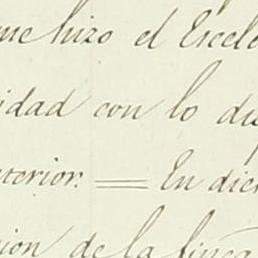 me hizo el Excele
idad con lo du
terior. = En dich
ion de la finca